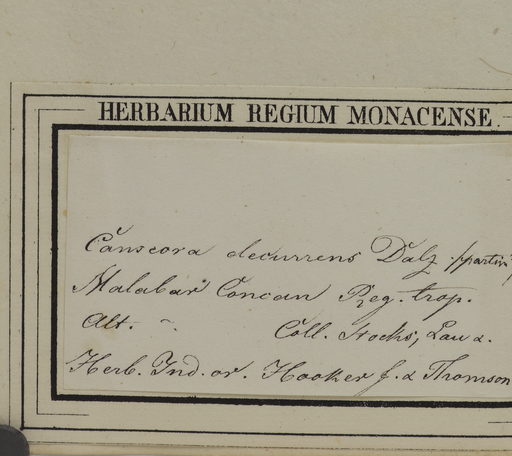 HERBARIUM REGIUM MONACENSE.
Canscora decurrens Dalz. (partim)
Malabar Concan Reg. trop.
Alt. ~.
Coll. Stocks, Law &.
Herb. Ind. or. Hooker f. & Thomson